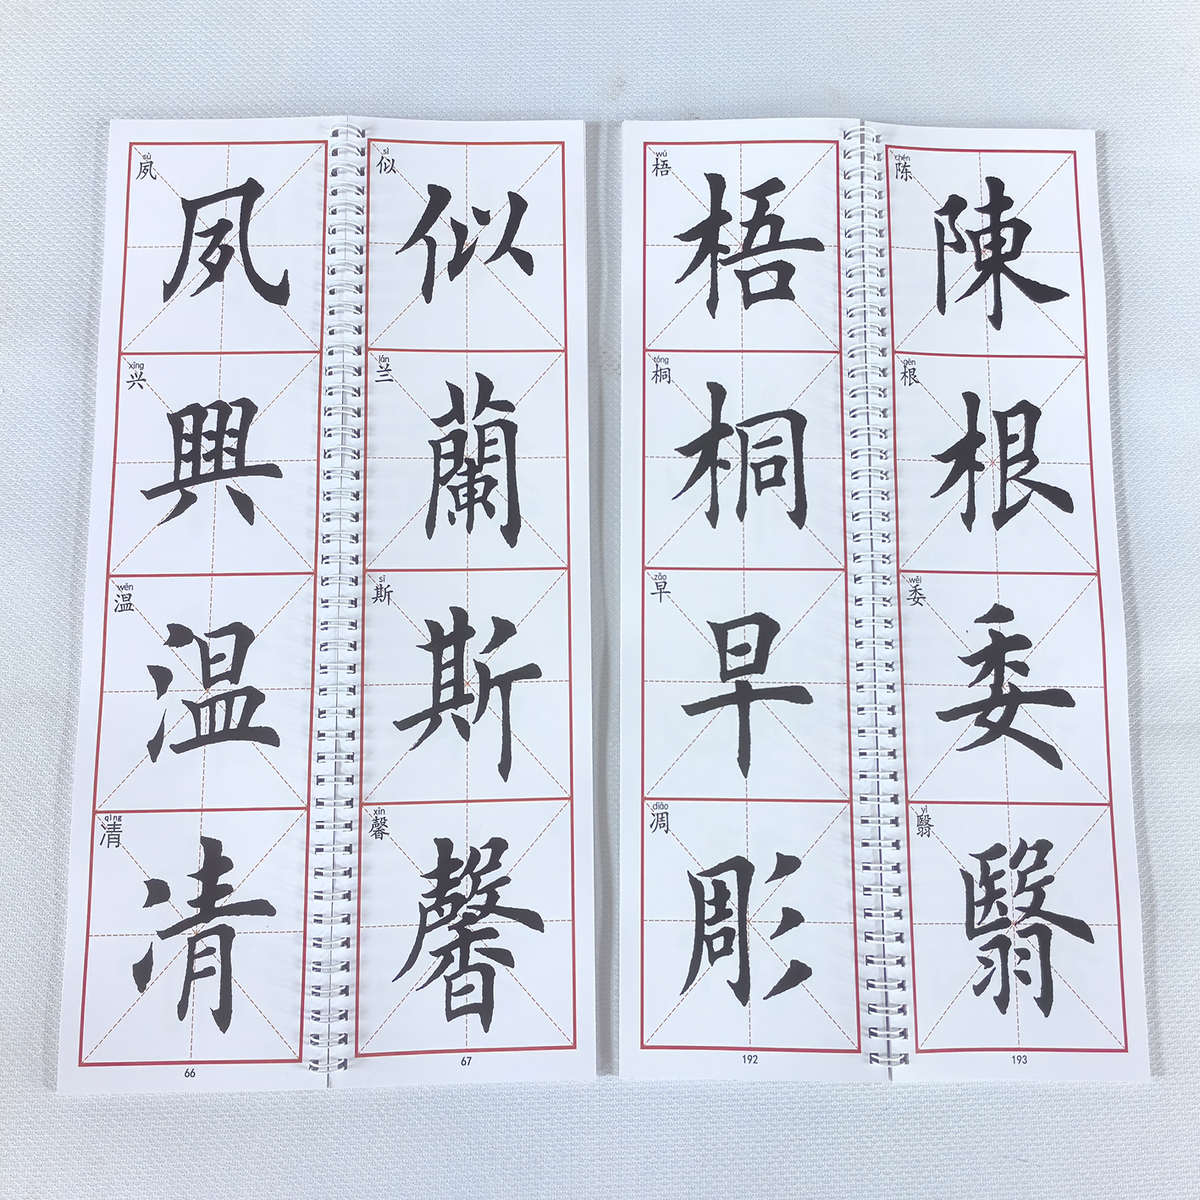 sù
夙
夙
xīng
兴
興
wēn
温
温
qìng
清
凊
66
sì
似
似
lán
兰
蘭
sī
斯
斯
xīn
馨
馨
67
wú
梧
梧
tóng
桐
桐
zǎo
早
早
diāo
凋
彫
192
chén
陈
陳
gēn
根
根
wěi
委
委
yì
翳
翳
193